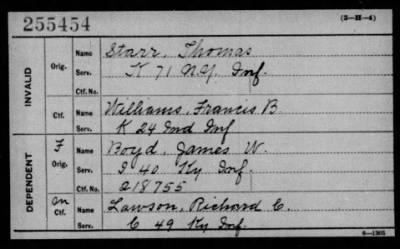 255454 (3-H-4)
INVALID
Orig. Name Starr, Thomas
Serv. K 71 N.Y. Inf.
Ctf. No.
Ctf. Name Williams, Francis B
Serv. K 24 Ind Inf
DEPENDENT
F Orig. Name Boyd, James W.
Serv. I 40 Ky Inf.
Ctf. No. 218755
Ctf. Name Lawson, Richard C.
Serv. C 49 Ky Inf.
6-1305